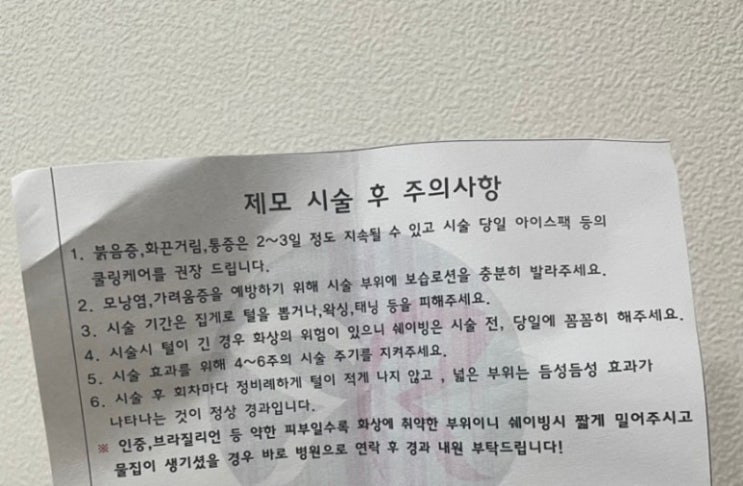 제모 시술 후 주의사항
1. 붉음증,화끈거림,통증은 2~3일 정도 지속될 수 있고 시술 당일 아이스팩 등의
쿨링케어를 권장 드립니다.
2. 모낭염,가려움증을 예방하기 위해 시술 부위에 보습로션을 충분히 발라주세요.
3. 시술 기간은 집게로 털을 뽑거나,왁싱,태닝 등을 피해주세요.
4. 시술시 털이 긴 경우 화상의 위험이 있으니 쉐이빙은 시술 전, 당일에 꼼꼼히 해주세요.
5. 시술 효과를 위해 4~6주의 시술 주기를 지켜주세요.
6. 시술 후 회차마다 정비례하게 털이 적게 나지 않고 , 넓은 부위는 듬성듬성 효과가
나타나는 것이 정상 경과입니다.
※ 인중,브라질리언 등 약한 피부일수록 화상에 취약한 부위이니 쉐이빙시 짧게 밀어주시고
물집이 생기셨을 경우 바로 병원으로 연락 후 경과 내원 부탁드립니다!